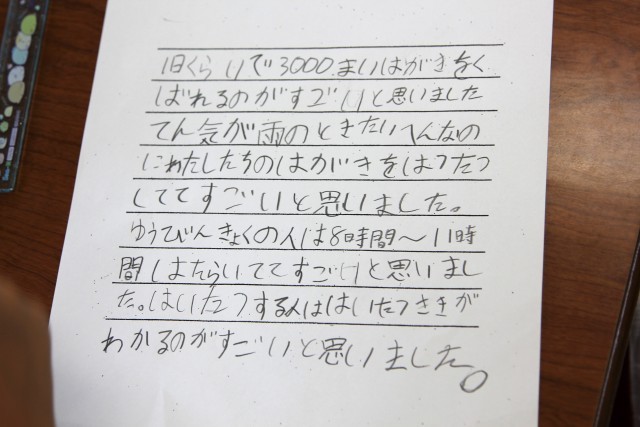 1日くらいで3000まいはがきをく
ばれるのがすごいと思いました
てん気が雨のときたいへんなの
にわたしたちのはがきをはいたつ
しててすごいと思いました。
ゆうびんきょくの人は8時間〜11時
間はたらいててすごいと思いまし
た。はいたつする人ははいたつさきが
わかるのがすごいと思いました。